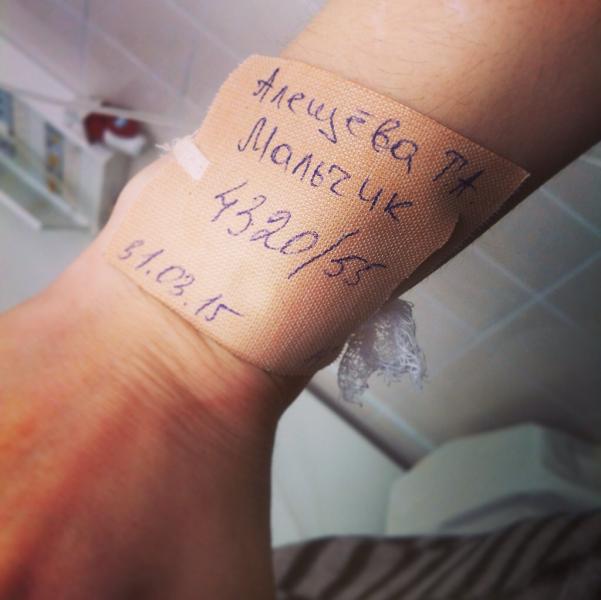 Алещёва Т.А.
Мальчик
4320/55
31.03.15